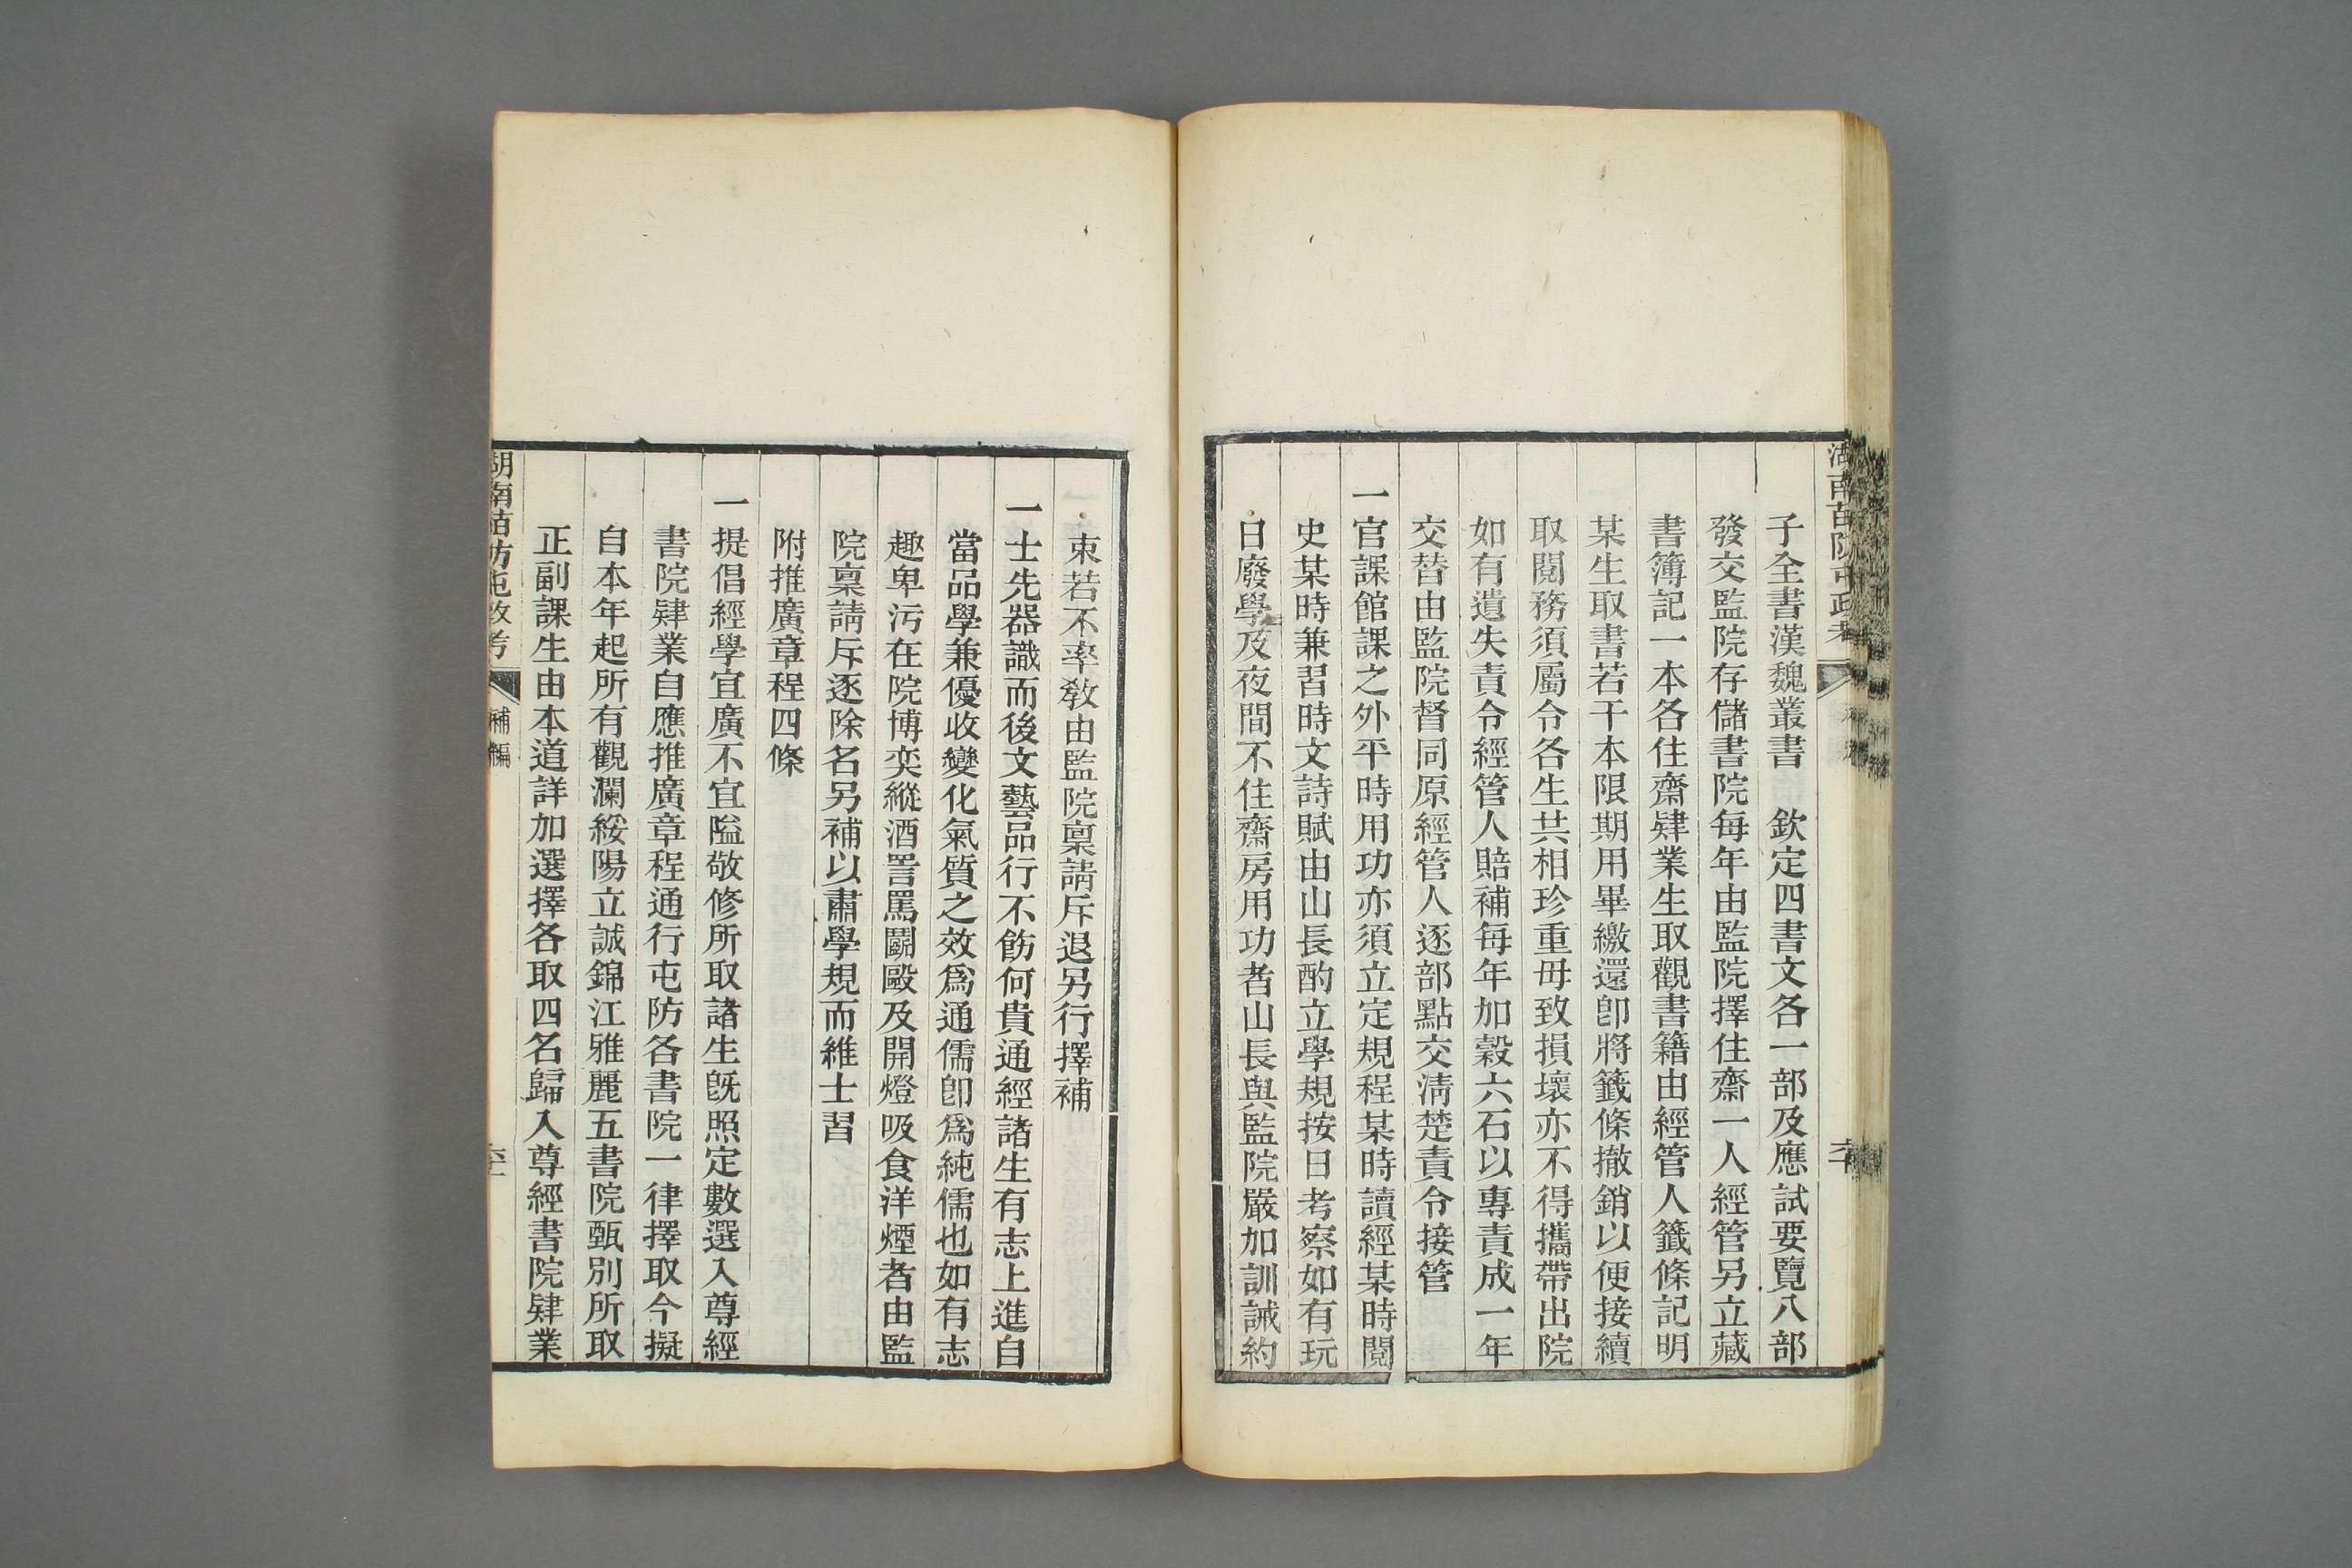 湖南苗防屯政考
子全書漢魏叢書　欽定四書文各一部及應試要覽八部
發交監院存儲書院每年由監院擇住齋一人經管另立藏
書簿記一本各住齋肄業生取觀書籍由經管人籤條記明
某生取書若干本限期用畢繳還卽將籤條撤銷以便接續
取閱務須屬令各生共相珍重毋致損壞亦不得攜帶出院
如有遺失責令經管人賠補每年加穀六石以專責成一年
交替由監院督同原經管人逐部點交淸楚責令接管
一官課館課之外平時用功亦須立定規程某時讀經某時閱
史某時兼習時文詩賦由山長酌立學規按日考察如有玩
日廢學及夜間不住齋房用功者山長與監院嚴加訓誡約
束若不率敎由監院稟請斥退另行擇補
一士先器識而後文藝品行不飭何貴通經諸生有志上進自
當品學兼優收變化氣質之效爲通儒卽爲純儒也如有志
趣卑污在院博奕縱酒詈罵鬬毆及開燈吸食洋煙者由監
院稟請斥逐除名另補以肅學規而維士習
附推廣章程四條
一提倡經學宜廣不宜隘敬修所取諸生旣照定數選入尊經
書院肄業自應推廣章程通行屯防各書院一律擇取今擬
自本年起所有觀瀾綏陽立誠錦江雅麗五書院甄別所取
正副課生由本道詳加選擇各取四名歸入尊經書院肄業
湖南苗防屯政考
補編